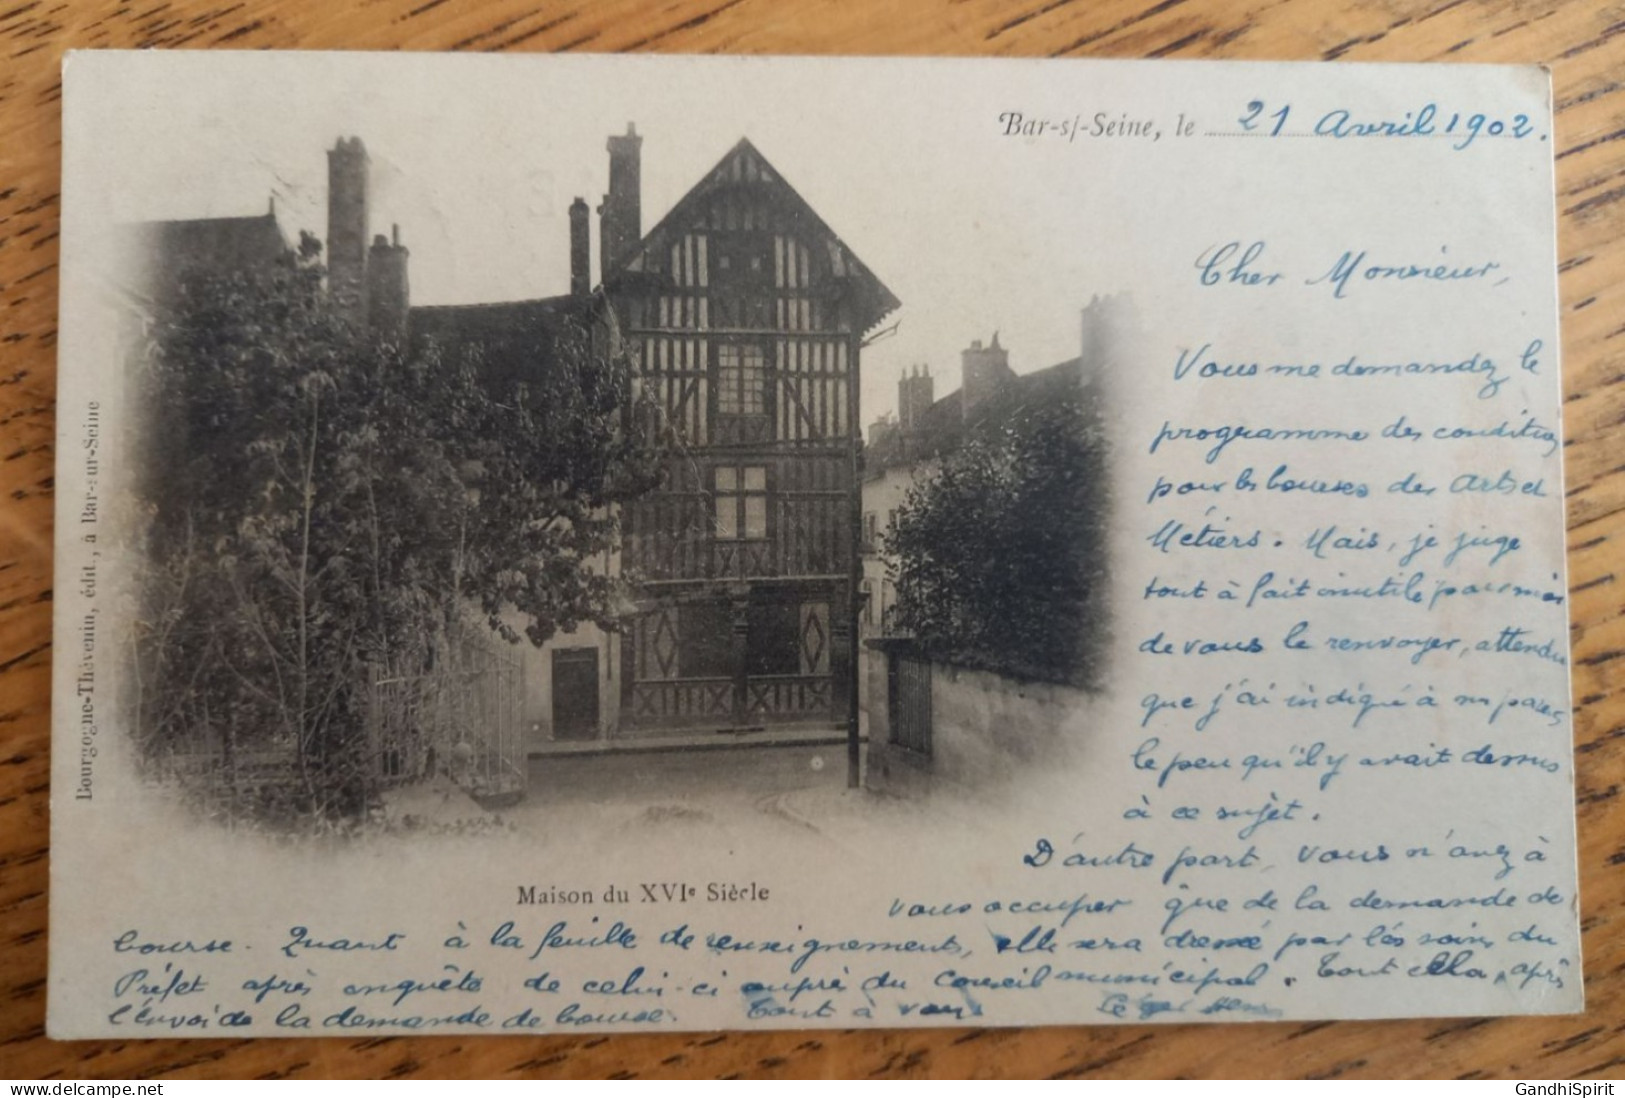 Bar-s/-Seine, le 21 Avril 1902.
Cher Monsieur,
Vous me demandez le
programme des conditions
pour les bourses des Arts et
Métiers. Mais, je juge
tout à fait inutile pour moi
de vous le renvoyer, attendu
que j'ai indiqué à
le peu qu'il y avait dessus
à ce sujet.
D'autre part, vous n'avez à
vous occuper que de la demande de
bourse. Quant à la feuille de renseignements, elle sera dressé par les soins du
Préfet après enquête de celui-ci auprès du Conseil municipal. Tout cela, après
l'envoi de la demande de bourse. Tout à vous
Maison du XVIe Siècle
Bourgogne-Thévenin, édit., à Bar-sur-Seine
delcampe.net
GandhiSpirit